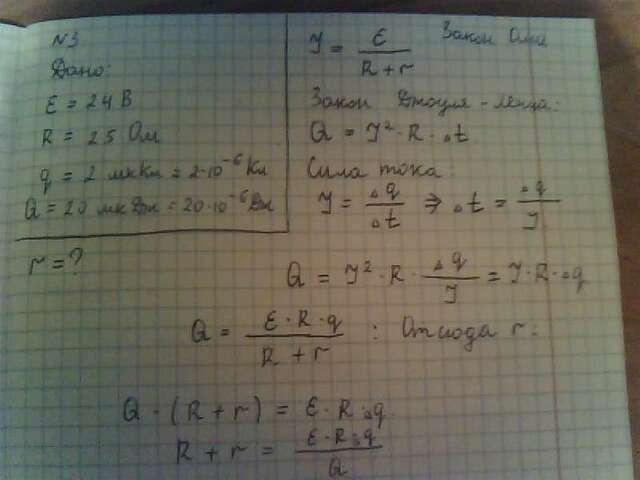 №3
Дано:
ε = 24 В
R = 25 Ом
q = 2 мкКл = 2·10⁻⁶ Кл
Q = 20 мкДж = 20·10⁻⁶ Дж
r = ?
I = ε / (R + r) Закон Ома
Закон Джоуля - Ленца:
Q = I² · R · Δt
Сила тока:
I = Δq / Δt ⇒ Δt = Δq / I
Q = I² · R · Δq / I = I · R · Δq
Q = ε · R · q / (R + r) : Отсюда r:
Q · (R + r) = ε · R · Δq
R + r = ε · R · Δq / Q